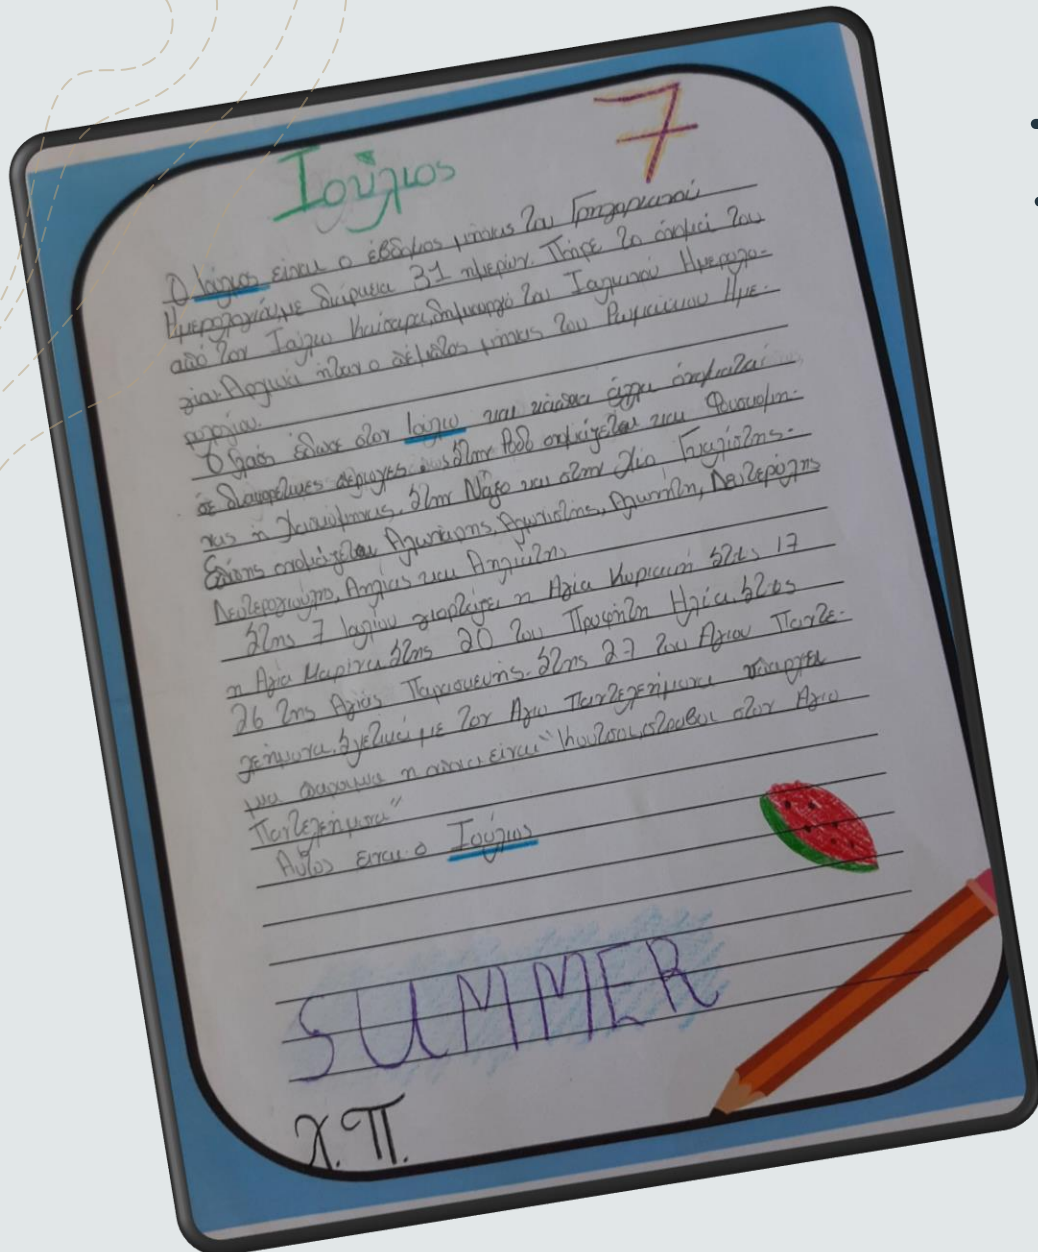 7
Ιούλιος
Ο Ιούλιος είναι ο έβδομος μήνας του Γρηγοριανού
Ημερολογίου με διάρκεια 31 ημερών. Πήρε το όνομά του
από τον Ιούλιο Καίσαρα, δημιουργό του Ιουλιανού Ημερολο-
γίου. Αρχικά ήταν ο πέμπτος μήνας του Ρωμαϊκού Ημε-
ρολογίου.
Ο λαός έδωσε στον Ιούλιο και κάποια άλλα ονόματα
σε διαφορετικές περιοχές. Στην ονομάζεται και
νας ή Στην Νάξο και στην Χίο Γυαλιστής.
Επίσης ονομάζεται Αλωνάρης, Αλωνιστής, Αλωνητής, Δευτερόλης
Δευτερογιούλης, Αηλιάς και Αηλιάτης
Στης 7 Ιουλίου γιορτάζει η Αγία Κυριακή Στις 17
η Αγία Μαρίνα. Στης 20 του Προφήτη Ηλία. Στις
26 της Αγίας Παρασκευής. Στης 27 του Αγίου Παντε-
λεήμονα. Σχετικά με τον Αγιο Παντελεήμονα υπάρχει
μια παροιμία η οποία είναι "Κουτσοί, στραβοί στον Αγιο
Παντελεήμονα"
Αυτός ειναι ο Ιούλιος
SUMMER
Χ.Π.